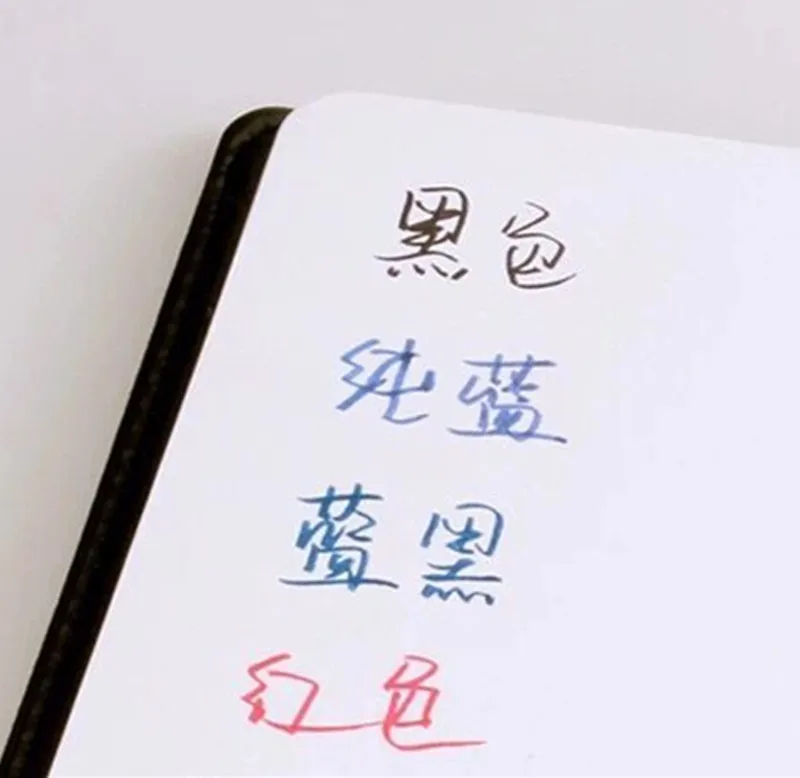 黑色
纯蓝
蓝黑
红色